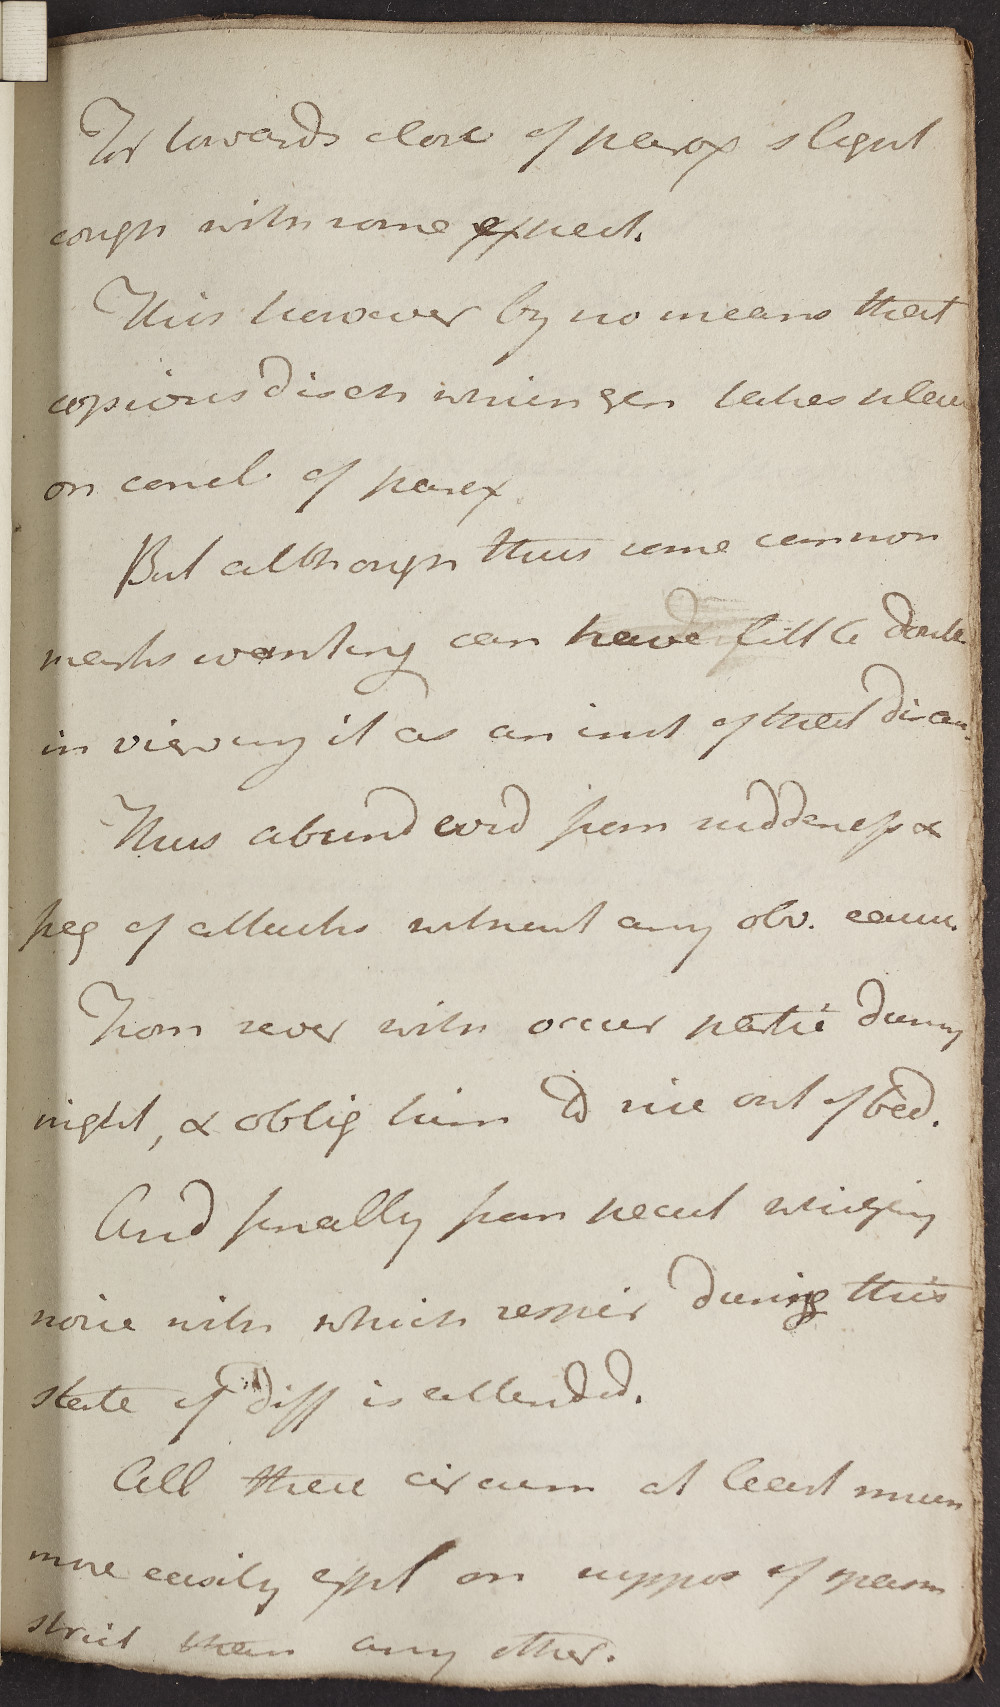 For towards close of parox slight
cough with some expect.
This however by no means that
copious disch which gen takes place
on concl of parox
But although thus some common
marks wanting can have little doubt
in viewing it as an inst of that diseas.
Thus abund evid from suddeness &
freq of attacks without any obv. cause.
From sever with occur partic during
night, & oblig him to rise out of bed.
And finally from pecul whizing
noise with which respir during this
state of diff is attended.
All these circum at least much
more easily expl on suppos of spasm
strict than any other.